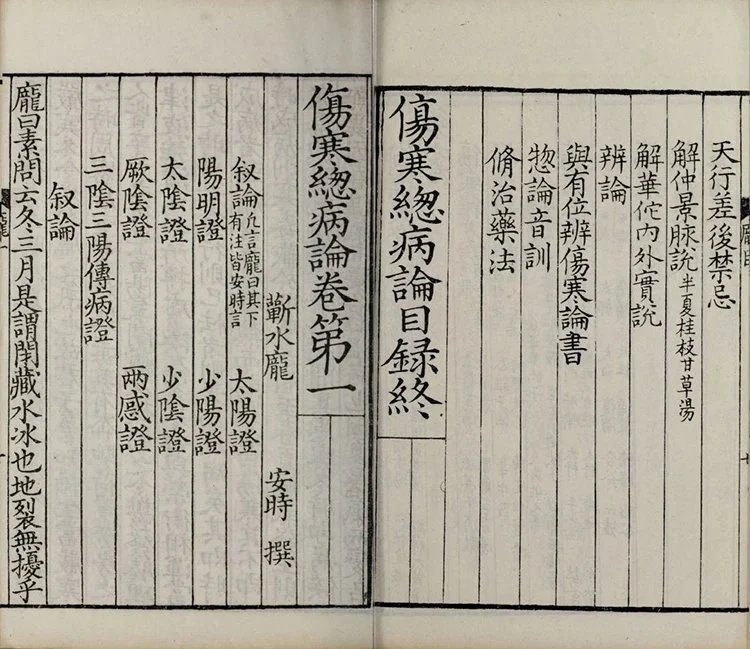 天行差後禁忌
解仲景脉說半夏桂枝甘草湯
解華佗内外實說
辨論
與有位辨傷寒論書
揔論音訓
脩治藥法
傷寒緫病論目録終
傷寒緫病論卷第一
蘄水龐 安時 撰
叙論凡言龐曰其下有注皆安時言 太陽證
陽明證 少陽證
太陰證 少陰證
厥陰證 兩感證
三陰三陽傳病證
叙論
龐曰素問云冬三月是謂閉藏水冰也地裂無擾乎